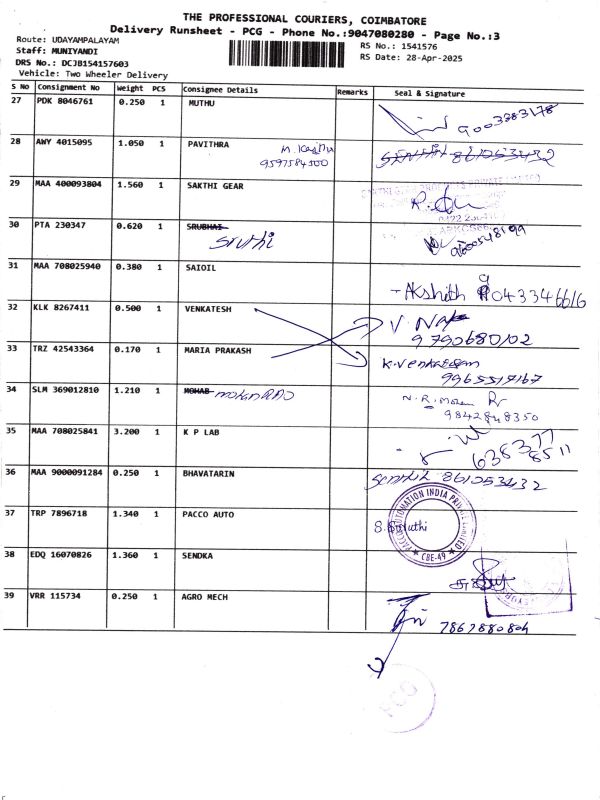 THE PROFESSIONAL COURIERS, COIMBATORE
Delivery Runsheet - PCG - Phone No.:9047080280 - Page No.:3
Route: UDAYAMPALAYAM
Staff: MUNIYANDI
RS No.: 1541576
DRS No.: DCJB154157603
RS Date: 28-Apr-2025
Vehicle: Two Wheeler Delivery
S No Consignment No Weight PCS Consignee Details Remarks Seal & Signature
27 PDK 8046761 0.250 1 MUTHU 9003383178
28 AWY 4015095 1.050 1 PAVITHRA
9597584500
SENTHIL 861053432
29 MAA 400093804 1.560 1 SAKTHI GEAR
30 PTA 230347 0.620 1 SRUBHAI
Sruthi
9600548199
31 MAA 708025940 0.380 1 SAIOIL
- Akshith 9043346616
32 KLK 8267411 0.500 1 VENKATESH
9790680102
33 TRZ 42543364 0.170 1 MARIA PRAKASH
K.Venkatesan
9965517167
34 SLM 369012810 1.210 1 MOHAB
N.R. Mohan
9842848350
35 MAA 708025841 3.200 1 K P LAB
638377
8511
36 MAA 9000091284 0.250 1 BHAVATARIN
Senthil 861053432
37 TRP 7896718 1.340 1 PACCO AUTO
S. Sruthi
CBE-49
38 EDQ 16070826 1.360 1 SENDKA
39 VRR 115734 0.250 1 AGRO MECH
7867880804
PCG